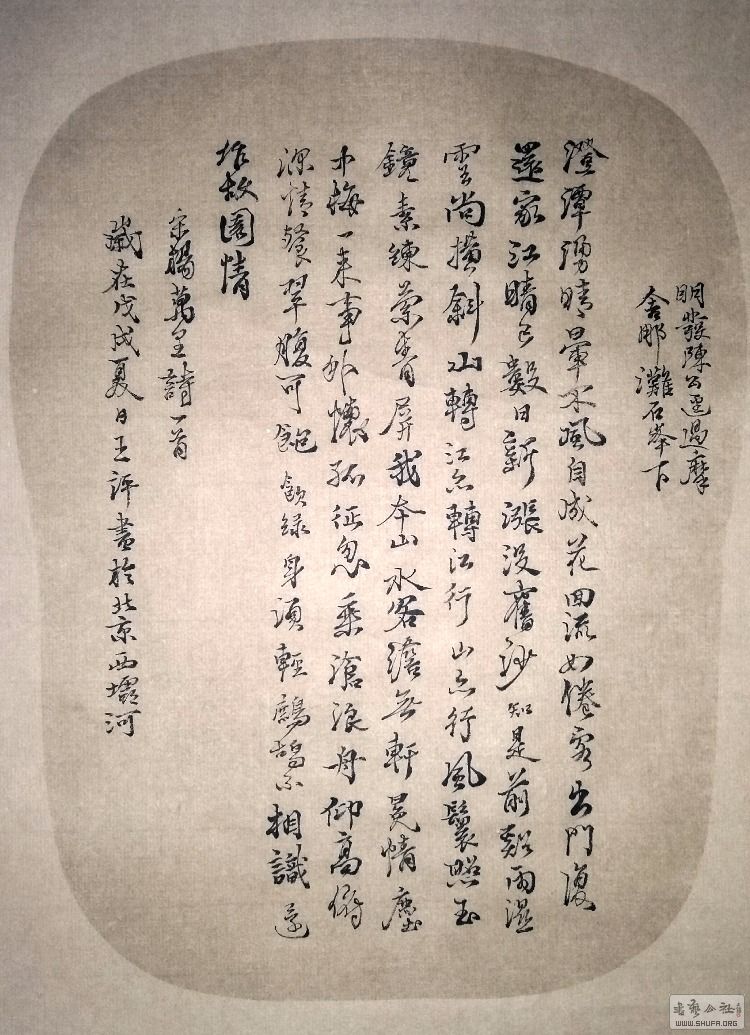 明發陳公逕過摩
舍那灘石峯下
澄潭湧晴暈不風自成花回流如倦客出門復
還家江晴已數日新漲沒舊沙知是前谿雨濕
雲尚橫斜山轉江亦轉江行山亦行風鬟照玉
鏡素練縈青屏我本山水客澹無軒冕情塵
中悔一来事外懷孤征忽乘滄浪舟仰高俯
深情餐翠腹可飽飲綠身須輕鸕鷀不相識還
作故園情
宋楊萬里詩一首
歲在戊戌夏日王評書於北京西壩河
书艺公社
WWW.SHUFA.ORG